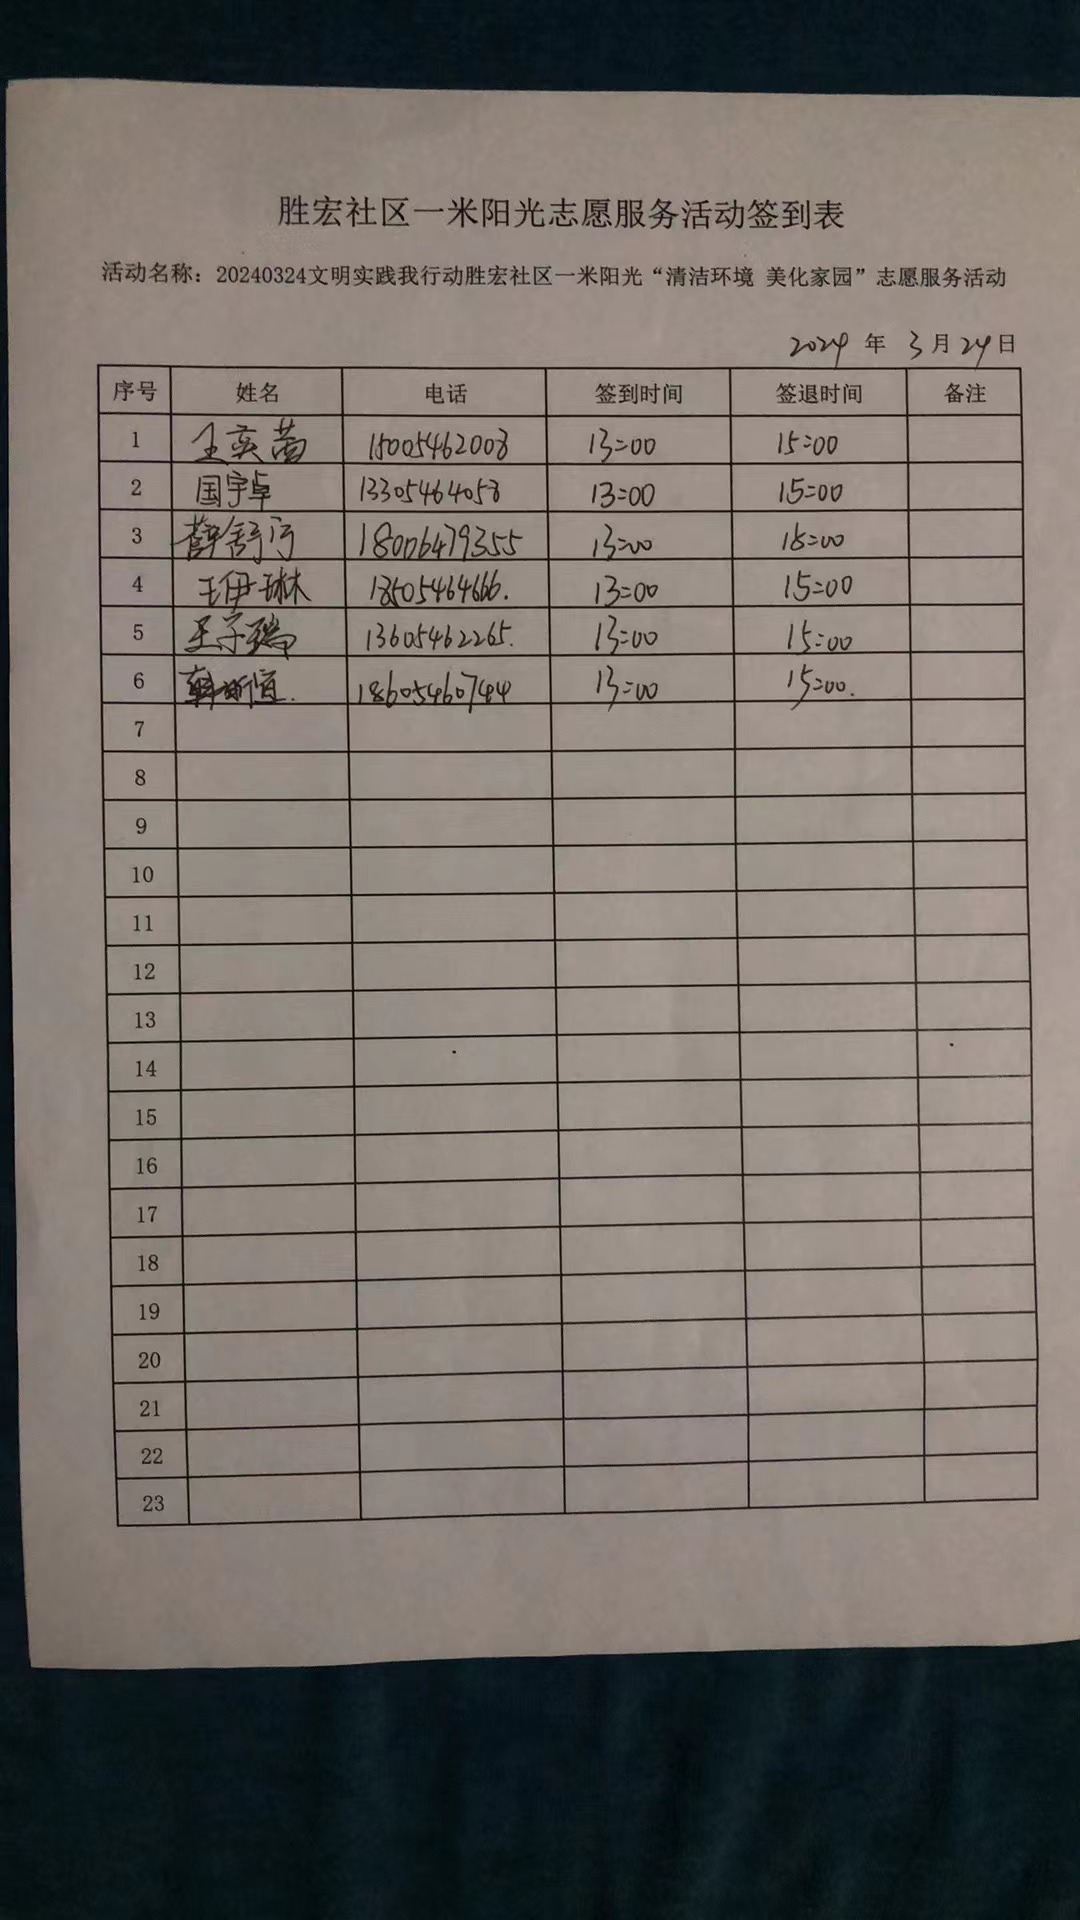 胜宏社区一米阳光志愿服务活动签到表
活动名称：20240324文明实践我行动胜宏社区一米阳光“清洁环境 美化家园”志愿服务活动
2024 年 3 月 24 日
序号 姓名 电话 签到时间 签退时间 备注
1 王奕茜 15005462008 13:00 15:00
2 国宇卓 13305464058 13:00 15:00
3 薛舒 18006479355 13:00 15:00
4 王伊琳 18505464666. 13:00 15:00
5 王子瑞 13605462265. 13:00 15:00
6 韩 恒. 18605460744 13:00 15:00.
7
8
9
10
11
12
13
14
15
16
17
18
19
20
21
22
23